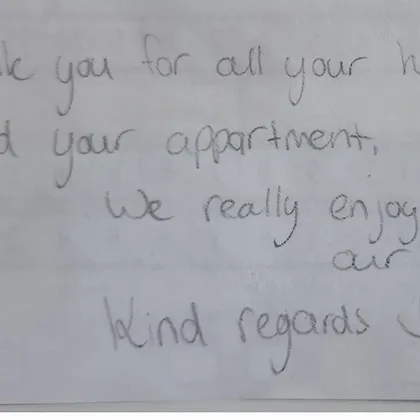 k you for all your h
d your appartment,
We really enjoy
our
Kind regards